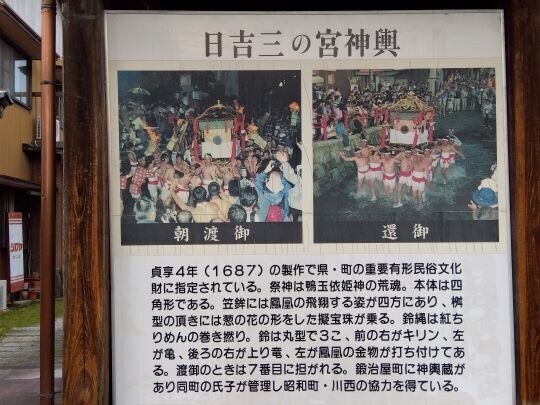 日吉三の宮神輿
朝渡御
還御
貞享4年(1687)の製作で県・町の重要有形民俗文化
財に指定されている。祭神は鴨玉依姫神の荒魂。本体は四
角形である。笠鉾には鳳凰の飛翔する姿が四方にあり、桝
型の頂きには葱の花の形をした擬宝珠が乗る。鈴縄は紅ち
りめんの巻き撚り。鈴は丸型で3こ、前の右がキリン、左
が亀、後ろの右が上り竜、左が鳳凰の金物が打ち付けてあ
る。渡御のときは7番目に担がれる。鍛治屋町に神輿蔵が
あり同町の氏子が管理し昭和町・川西の協力を得ている。